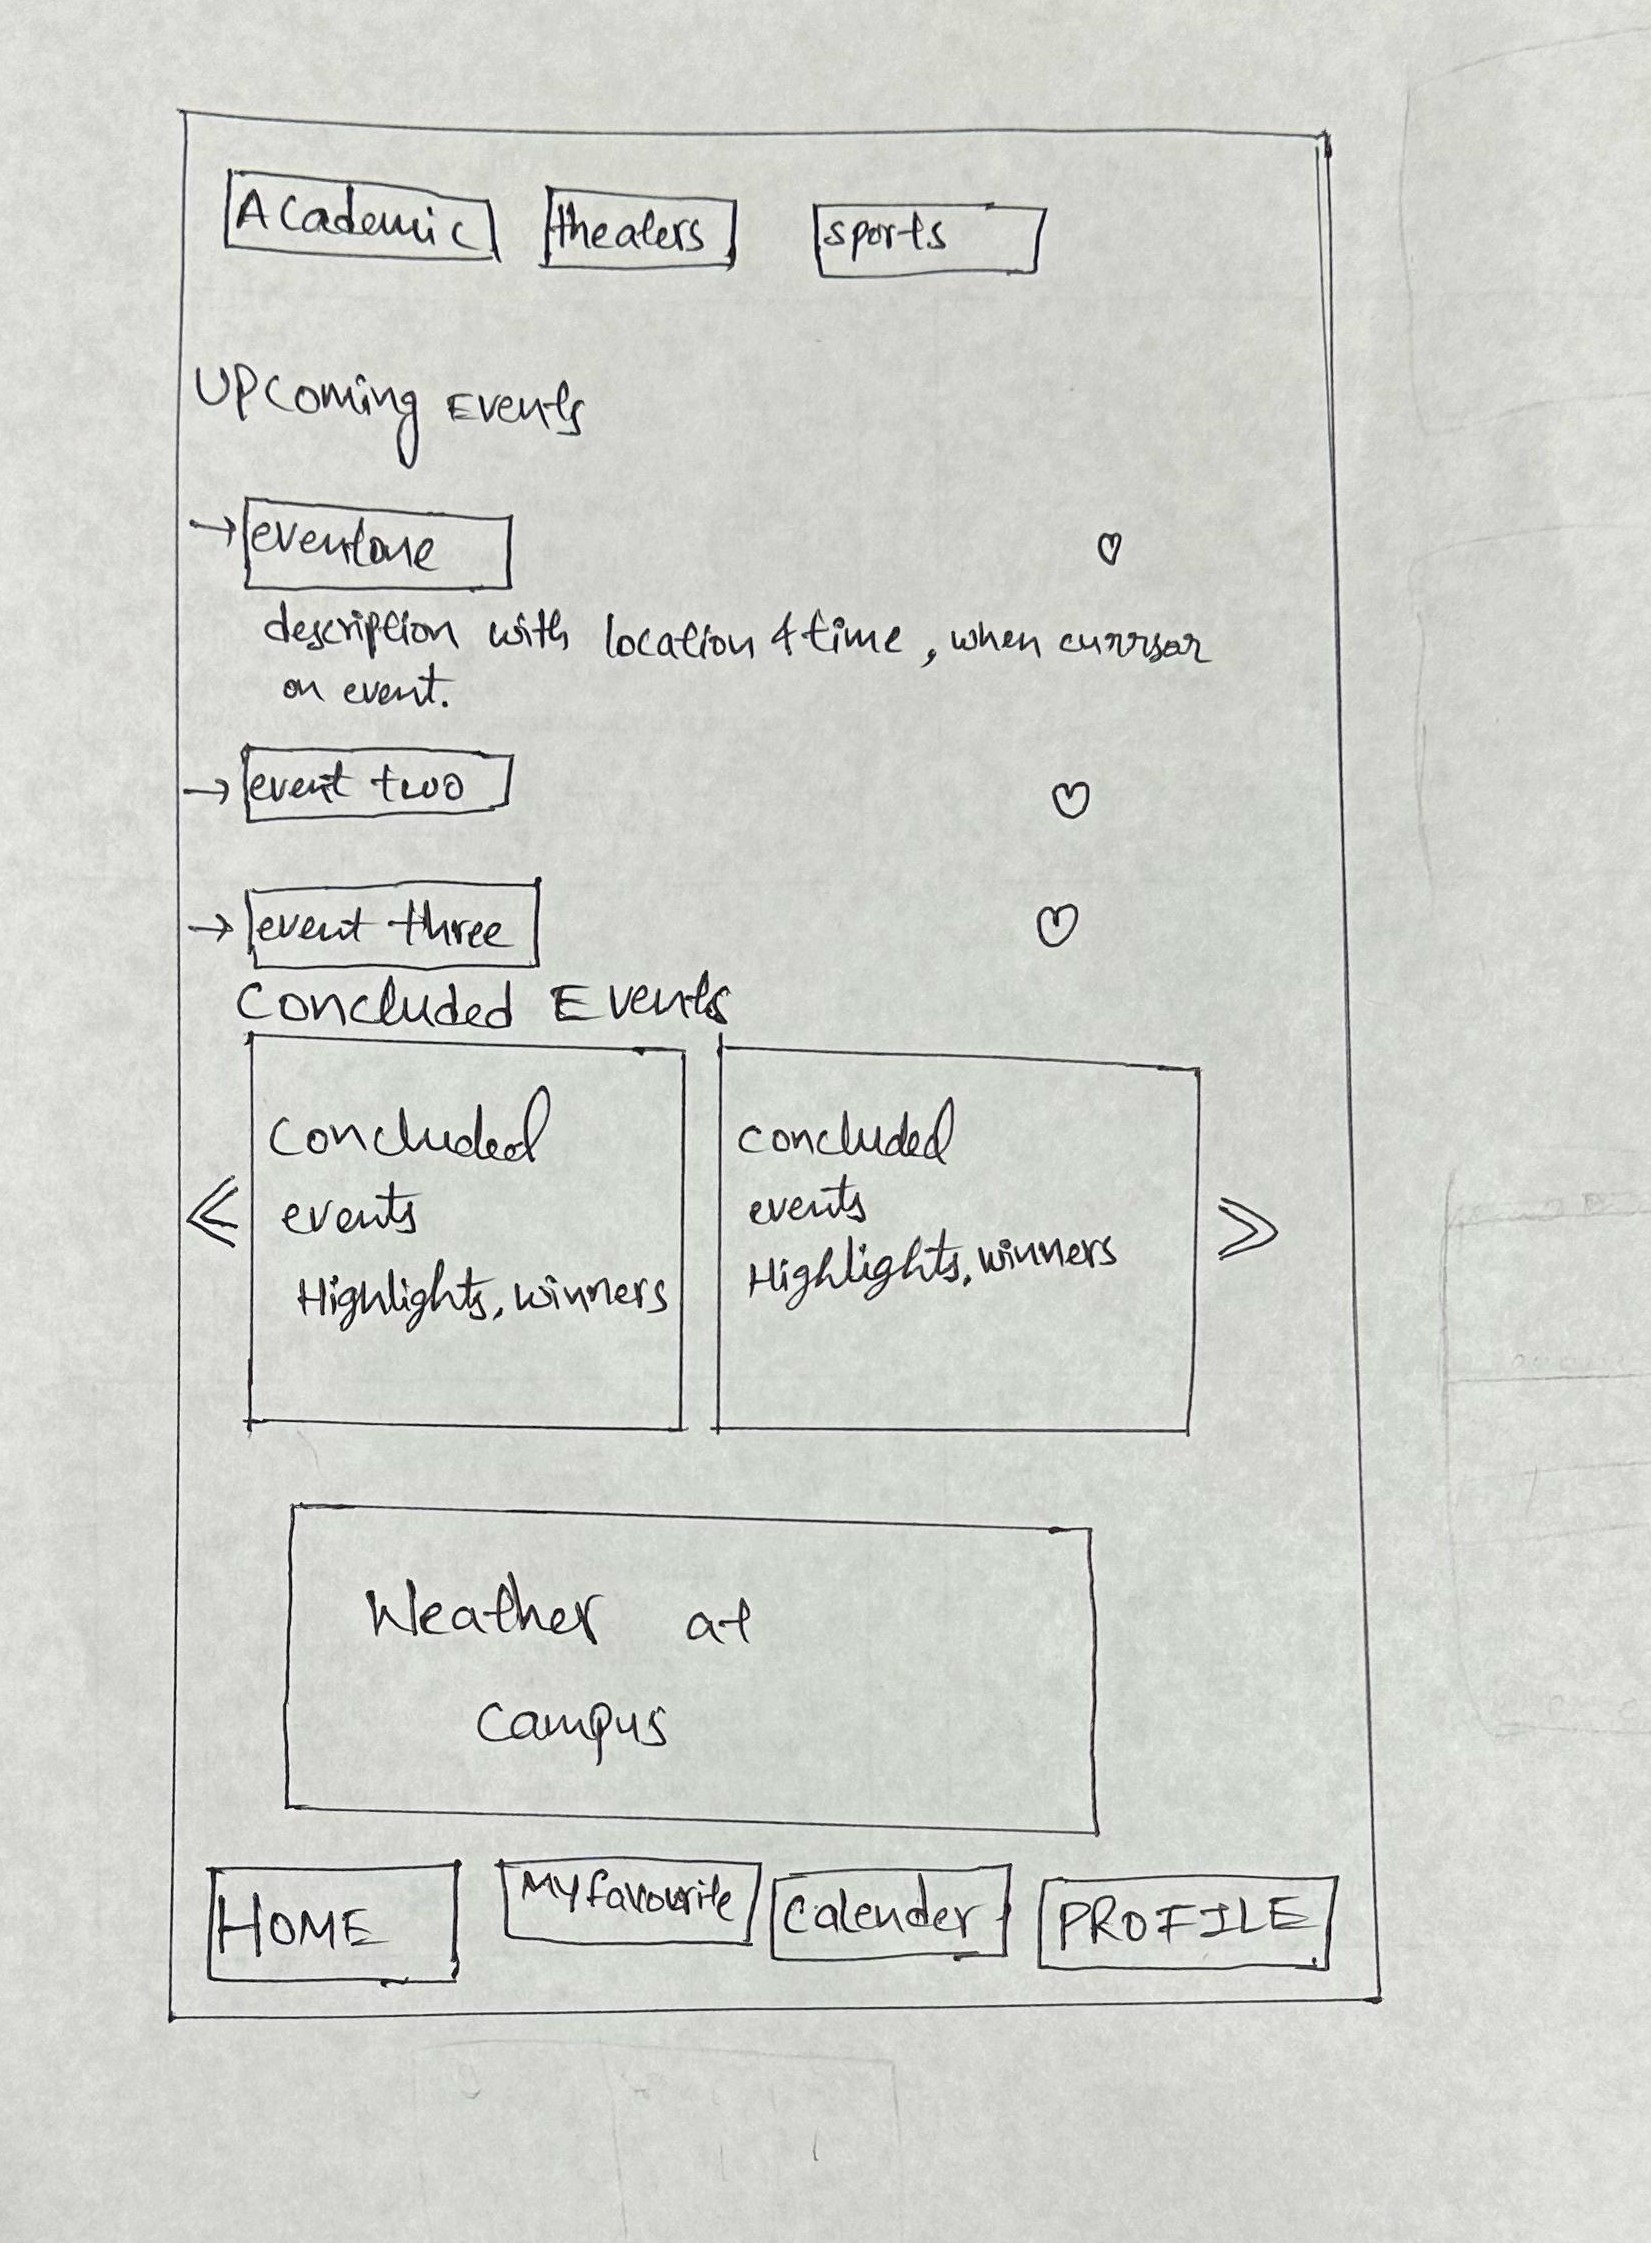 Academic theaters sports
UPcoming Events
→ eventone ♡
description with location & time, when currsor
on event.
→ event two ♡
→ event three ♡
Concluded Events
Concluded
events
Highlights, winners
concluded
events
Highlights, winners
Weather at
campus
HOME My favourite Calender PROFILE